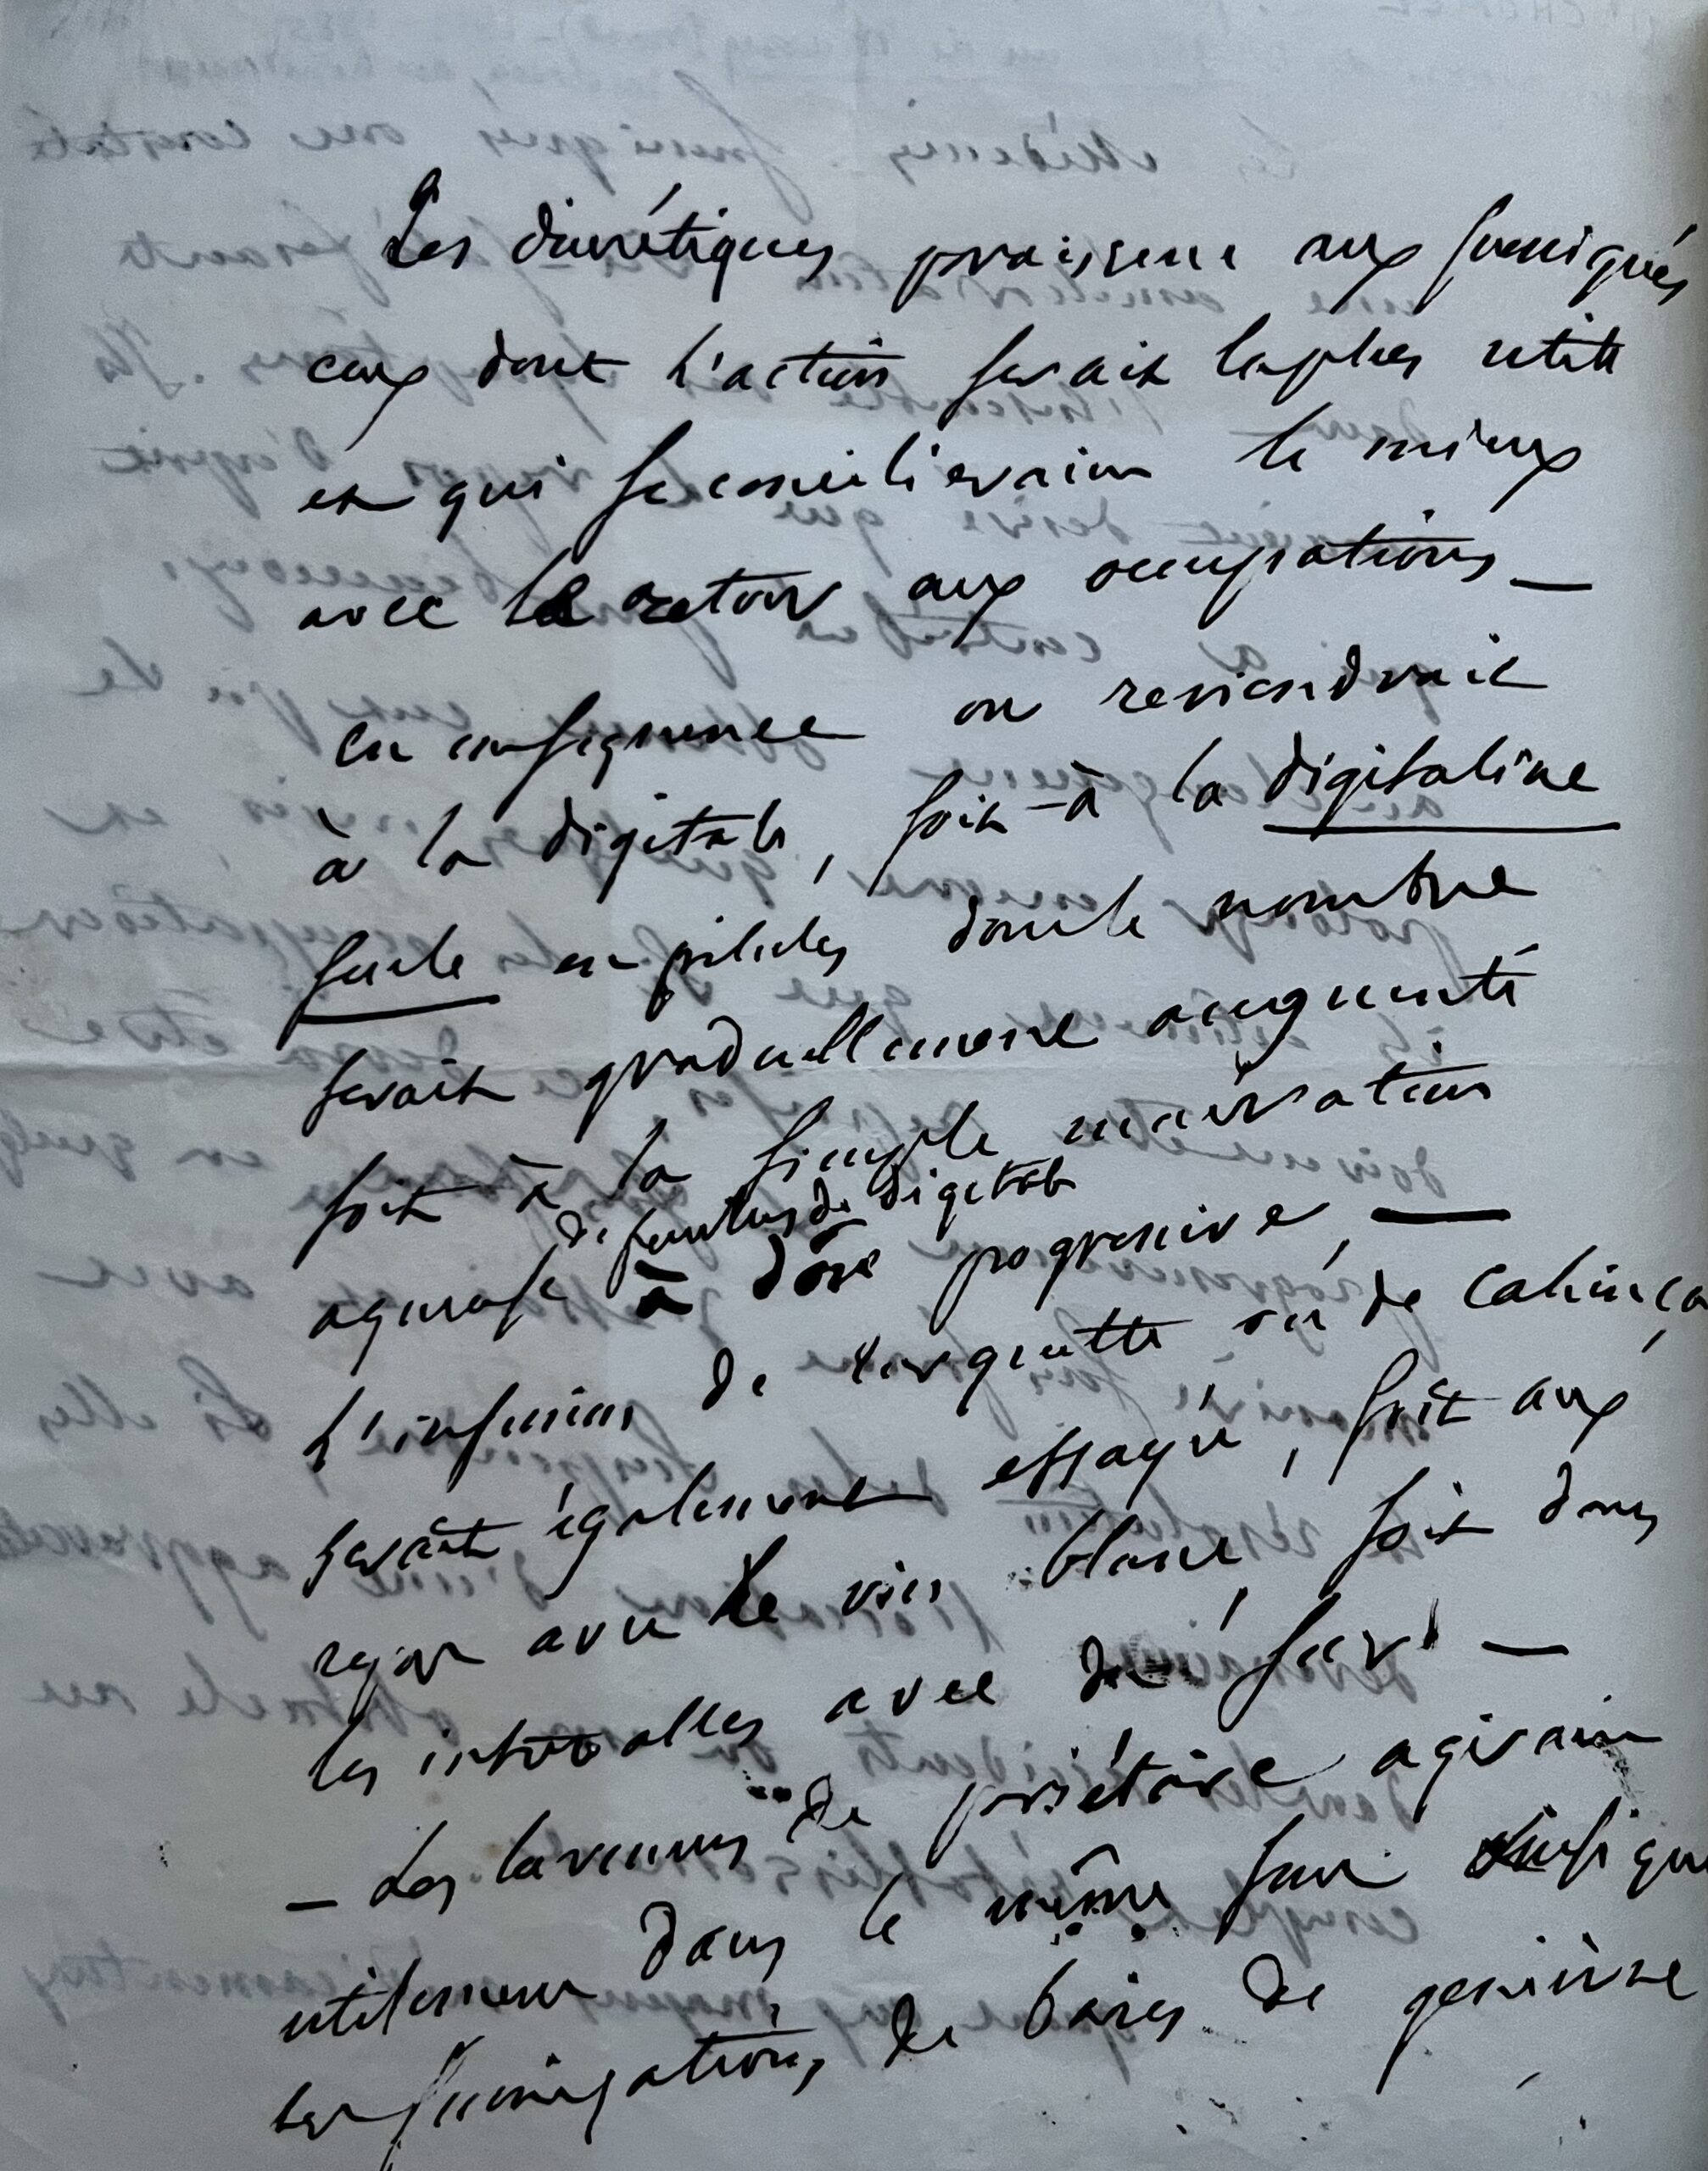 Les diurétiques praissent aux soussignés
ceux dont l'action serait la plus utile
et qui se concilieraient le mieux
avec le retour aux occupations —
en conséquence on reviendrait
à la digitale, soit à la digitaline
seule en pilules dont le nombre
serait graduellement augmenté
soit à la simple macération
de feuilles de digitale
aqueuse à dose progressive, —
L'infusion de ou de Cahinça
serait également essayé, soit aux
repas avec le vin blanc, soit dans
les intervalles avec du —
— Les lavements de pariétaire agiraient
utilement dans le même sens ainsi que
les fumigations de baies de genièvre